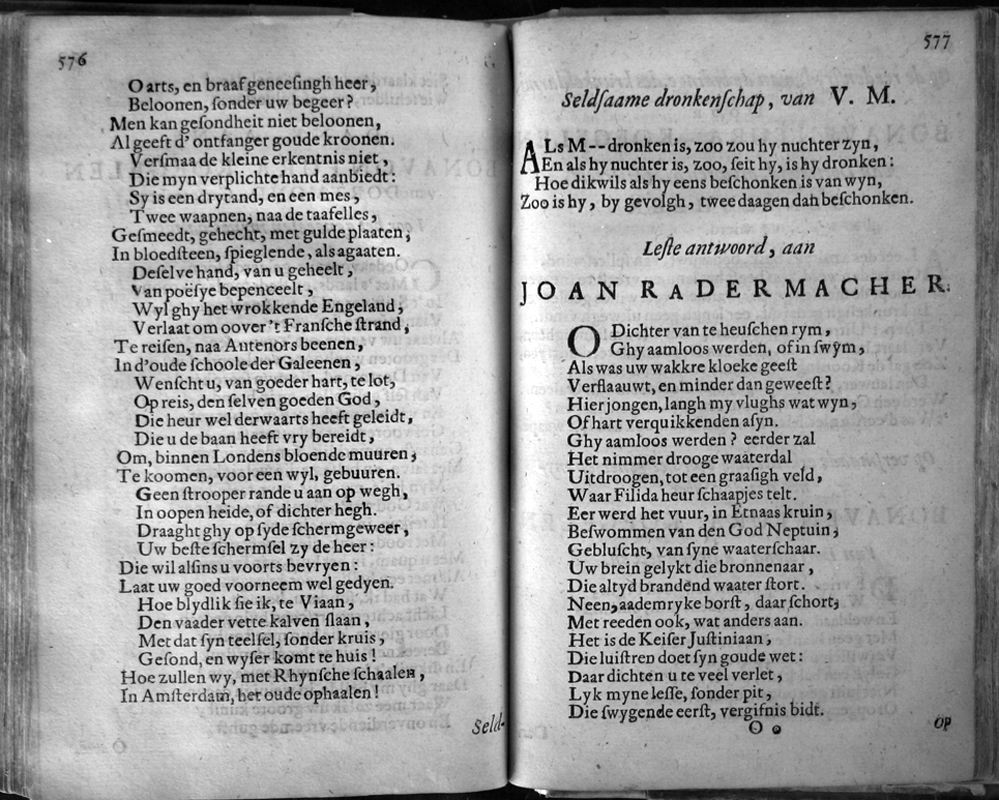 576
O arts, en braaf geneeſingh heer,
Beloonen, ſonder uw begeer?
Men kan geſondheit niet beloonen,
Al geeft d' ontfanger goude kroonen.
Verſmaa de kleine erkentnis niet,
Die myn verplichte hand aanbiedt:
Sy is een drytand, en een mes,
Twee waapnen, naa de taafelles,
Geſmeedt, gehecht, met gulde plaaten;
In bloedſteen, ſpieglende, als agaaten.
Deſelve hand, van u geheelt,
Van poëſye bepenceelt,
Wyl ghy het wrokkende Engeland;
Verlaat om oover 't Franſche ſtrand;
Te reiſen, naa Antenors beenen,
In d'oude ſchoole der Galeenen,
Wenſcht u, van goeder hart, te lot,
Op reis, den ſelven goeden God,
Die heur wel derwaarts heeft geleidt,
Die u de baan heeft vry bereidt,
Om, binnen Londens bloende muuren;
Te koomen, voor een wyl, gebuuren.
Geen ſtrooper rande u aan op wegh,
In oopen heide, of dichter hegh.
Draaght ghy op ſyde ſchermgeweer,
Uw beſte ſchermſel zy de heer:
Die wil alſins u voorts bevryen:
Laat uw goed voorneem wel gedyen.
Hoe blydlik ſie ik, te Viaan,
Den vaader vette kalven ſlaan,
Met dat ſyn teelſel, ſonder kruis,
Geſond, en wyſer komt te huis!
Hoe zullen wy, met Rhynſche ſchaalen,
In Amſterdam, het oude ophaalen!
Seld-
577
Seldſaame dronkenſchap, van V. M.
ALs M-- dronken is, zoo zou hy nuchter zyn,
En als hy nuchter is, zoo, ſeit hy, is hy dronken:
Hoe dikwils als hy eens beſchonken is van wyn,
Zoo is hy, by gevolgh, twee daagen dan beſchonken.
Leſte antwoord, aan
JOAN RADERMACHER.
O Dichter van te heuſchen rym,
Ghy aamloos werden, of in ſwŷm,
Als was uw wakkre kloeke geeſt
Verflaauwt, en minder dan geweeſt?
Hier jongen, langh my vlughs wat wyn,
Of hart verquikkenden aſyn.
Ghy aamloos werden? eerder zal
Het nimmer drooge waaterdal
Uitdroogen, tot een graaſigh veld,
Waar Filida heur ſchaapjes telt.
Eer werd het vuur, in Etnaas kruin,
Beſwommen van den God Neptuin;
Gebluſcht, van ſyne waaterſchaar.
Uw brein gelykt die bronnenaar,
Die altyd brandend waater ſtort.
Neen, aademryke borſt, daar ſchort;
Met reeden ook, wat anders aan.
Het is de Keiſer Juſtiniaan,
Die luiſtren doet ſyn goude wet:
Daar dichten u te veel verlet,
Lyk myne leſſe, ſonder pit,
Die ſwygende eerſt, vergifnis bidt.
O o
Op